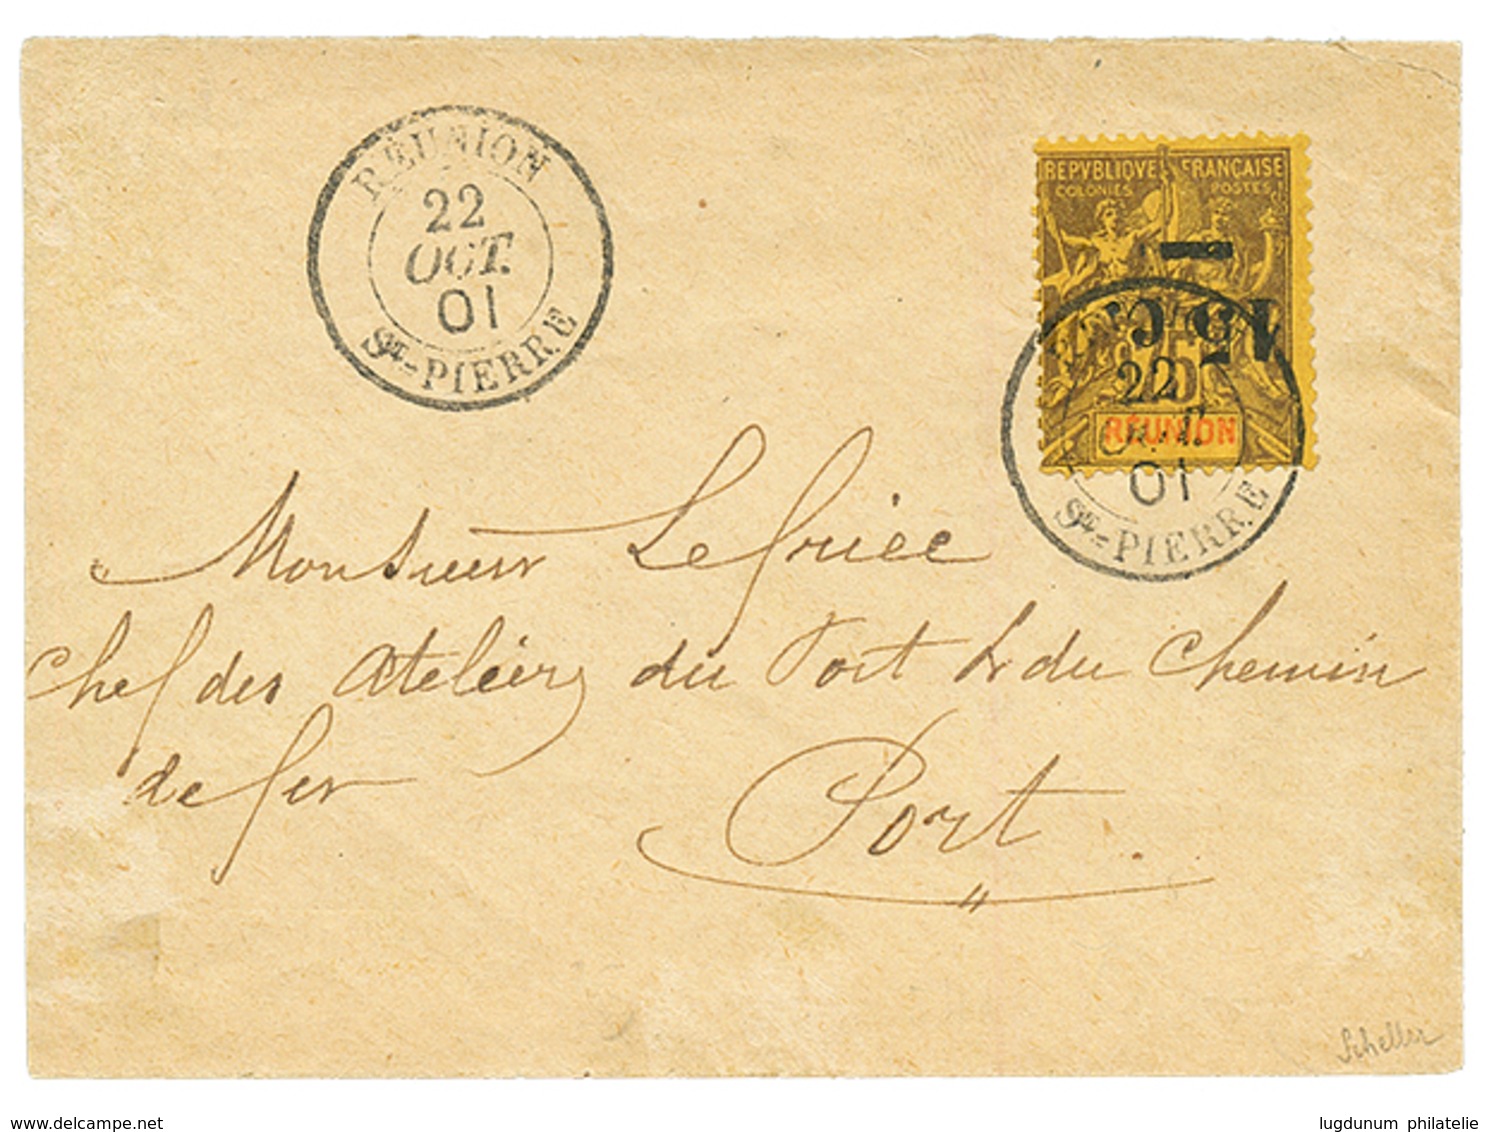 RÉUNION
22
OCT.
01
St-PIERRE
REPVBLIQVE FRANÇAISE
COLONIES POSTES
15 c.
22
RÉUNION
01
St-PIERRE
Monsieur
Chef des Ateliers du Port & du Chemin
de fer
Port
Scheller
www.delcampe.net
lugdunum philatelie